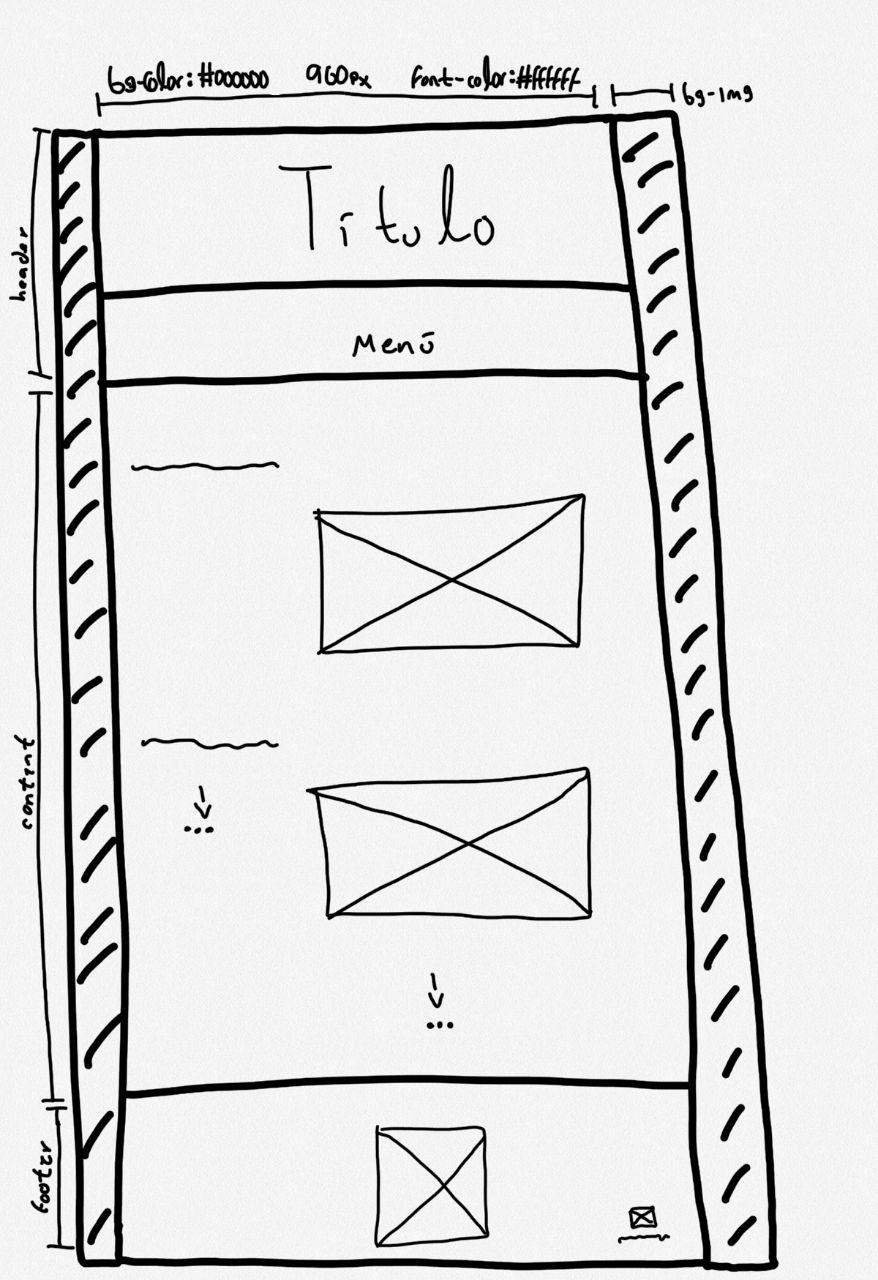 bg-color: #000000 960px font-color: #ffffff
bg-img
Título
header
Menú
content
...
...
footer